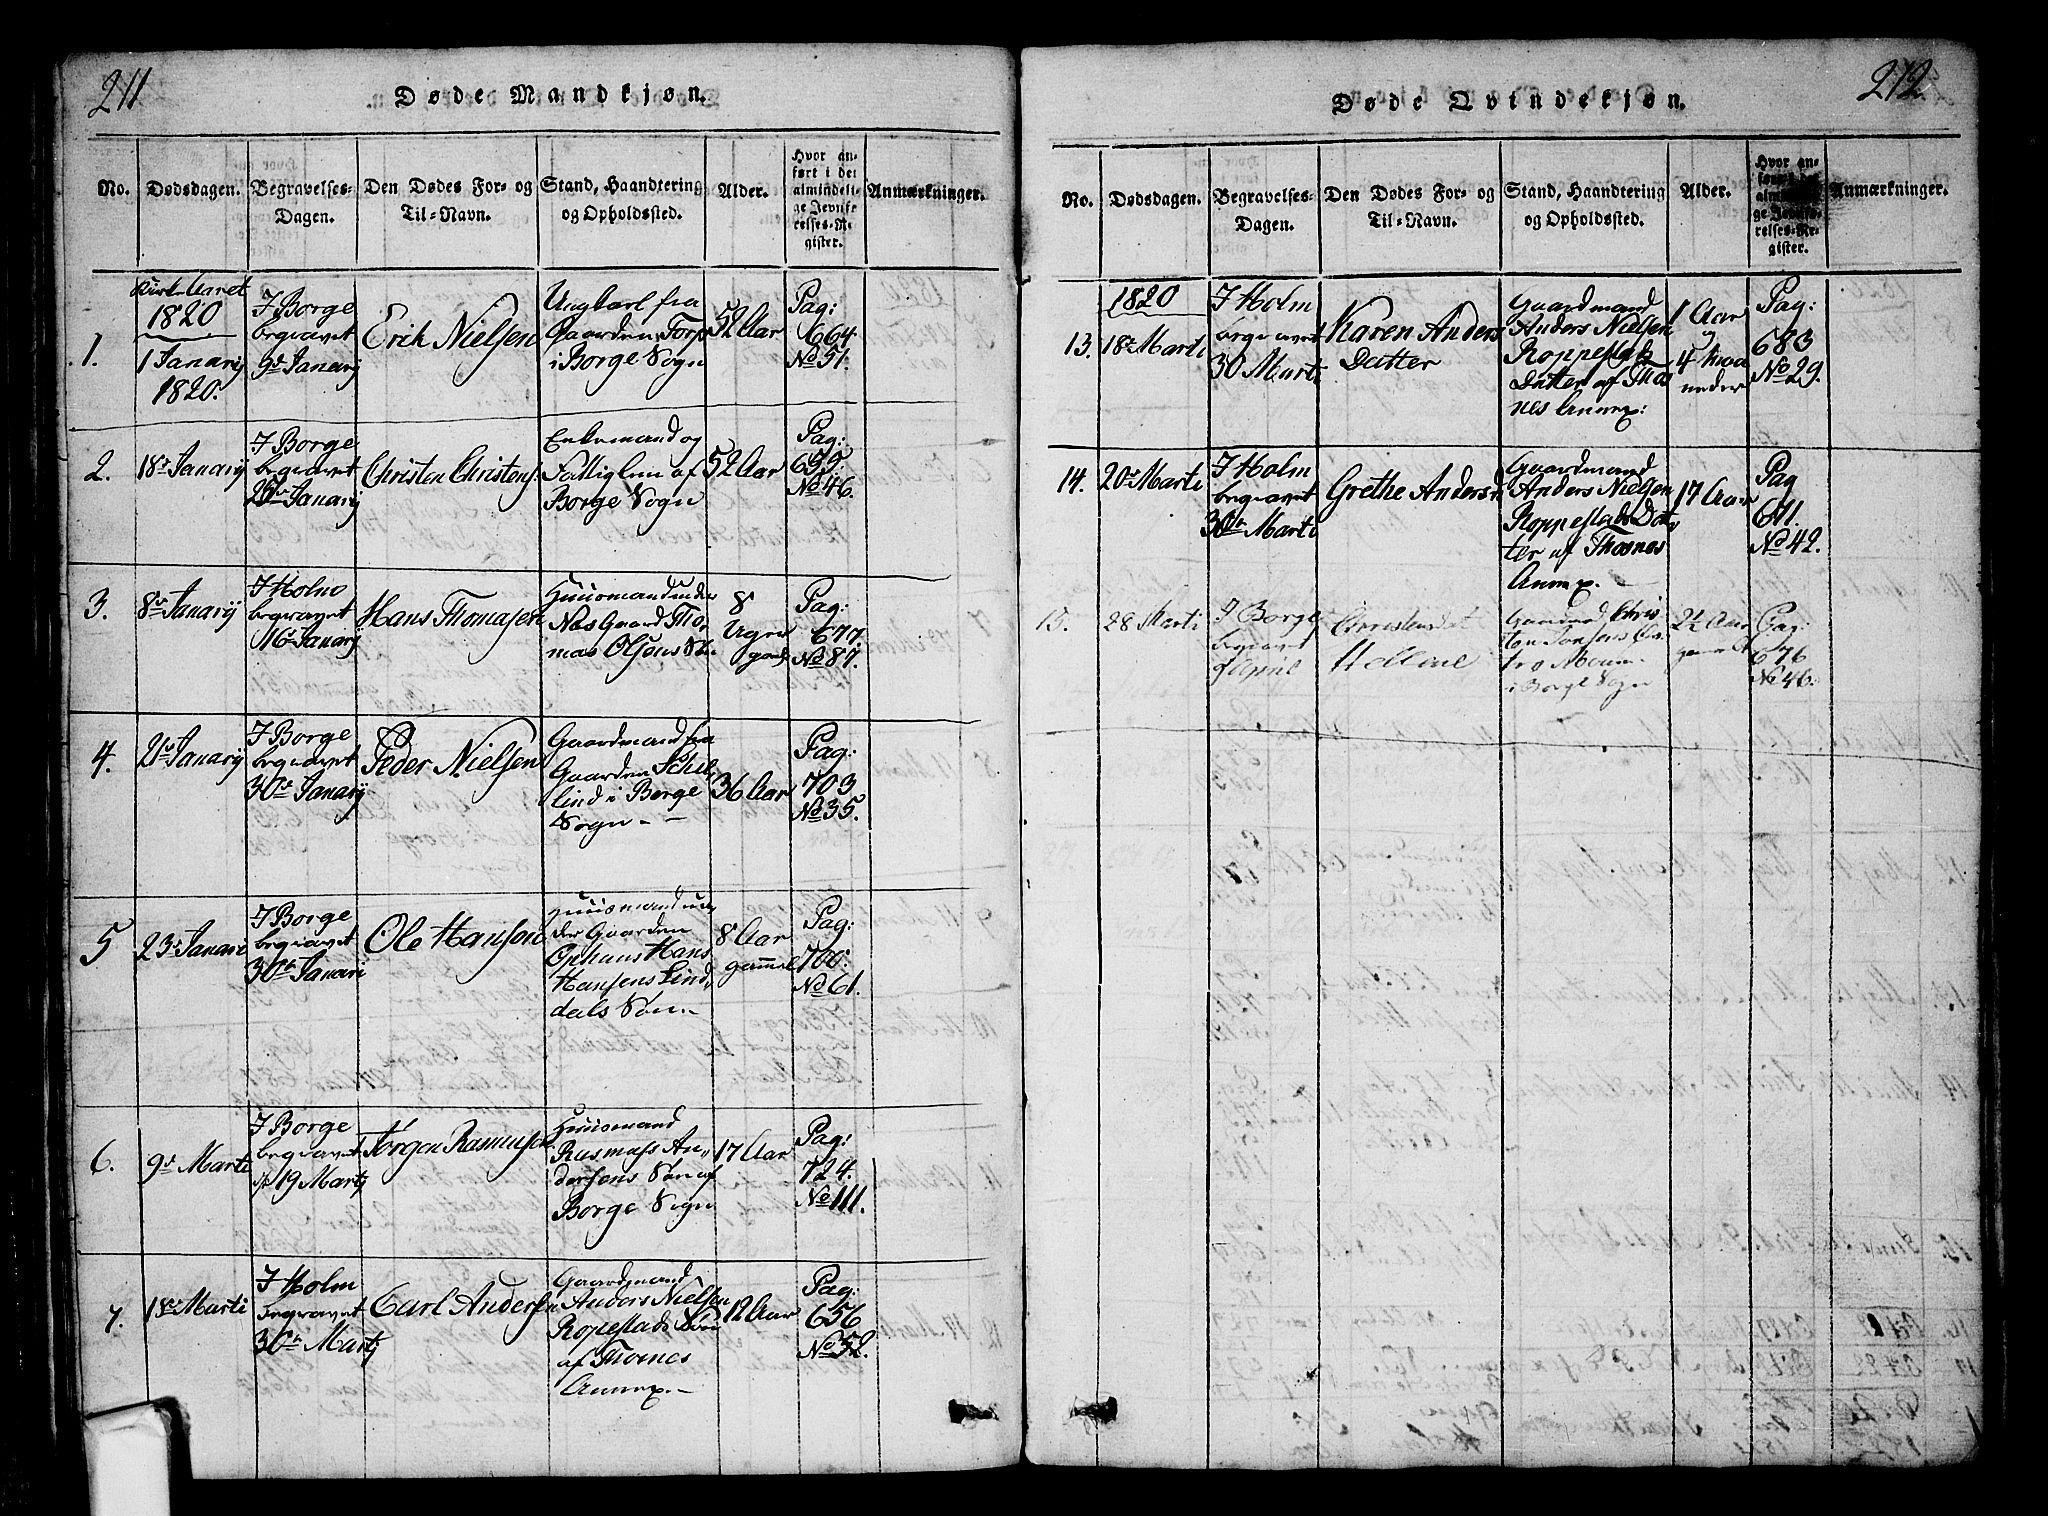 211
Døde Mandkjøn.
No.
Dødsdagen.
Begravelses-
Dagen.
Den Dødes For- og
Til-Navn.
Stand, Haandtering
og Opholdssted.
Alder.
Hvor an-
ført i det
almindeli-
ge Jevnfø-
relses-Re-
gister.
Anmærkninger.
Kirke Aaret
1820
1.
1 Janarij
1820.
I Borge
begravet
9de Janarij
Erik Nielsen
Ungkarl fra
Gaarden Torp
i Borge Sogn
52 Aar
Pag:
664.
No 51.
2.
18de Janarij
I Borge
begravet
Janarij
Christen Christens:
Enkemand og
Fattiglem af
Borge Sogn
52 Aar
Pag:
No 46.
3.
8de Janarij
I Holm
begravet
16de Janarij
Hans Thomasen
Huusmand under
Næs Gaard Tho-
mas Olsens Sø.
8
Uger
gaml.
Pag:
677.
No 87.
4.
21de Janarij
I Borge
begravet
30te Janarij
Peder Nielsen
Gaardmand fra
Gaarden
lind i Borge
Sogn - -
36 Aar
Pag:
703
No 35.
5
23de Janari
I Borge
begravet
30te Janari
Ole Hansen
Huusmand un-
der Gaarden
Ophuus Hans
Hansens Lind-
dals Søn.-
8 Aar
gammel
Pag:
700.
No 61.
6.
9de Marti
I Borge
begravet
19 Martj
Jørgen Rasmusen
Huusmand
Rasmuss An-
dersens Søn af
Borge Sogn
17 Aar
Pag:
724.
No 111.
7.
18de Marti
I Holm
begravet
30te Martj
Carl Andersen
Gaardmand
Anders Nielsen
Ropestads Søn
af Thornes
Annex.-
12 Aar
Pag:
656
No 52.
212
Døde Qvindekjøn.
No.
Dødsdagen.
Begravelses-
Dagen.
Den Dødes For- og
Til-Navn.
Stand, Haandtering
og Opholdssted.
Alder.
Hvor an-
ført i det
almindeli-
ge Jevnfø-
relses-Re-
gister.
Anmærkninger.
1820
13.
18de Marti
I Holm
begravet
30 Marti
Karen Anders
Datter
Gaardmand
Anders Nielsen
Roppestads
Datter af Thor
nes Annex:
1 Aar
4 Maa
neder
Pag:
683
No 29.
14.
20de Marti
I Holm
begravet
30te Marti
Grethe Andersd
Gaardmand
Anders Nielsen
Roppestads Dat
ter af Thosnes
Annex.-
17 Aar
Pag
No 42.
15.
28 Marti
I Borge
begravet
April
Christensdat
Hellene
Gaardmd Chris
ten Jansens
i Borge Sogn
2½ Aar
gammel
Pag:
676
No 46.